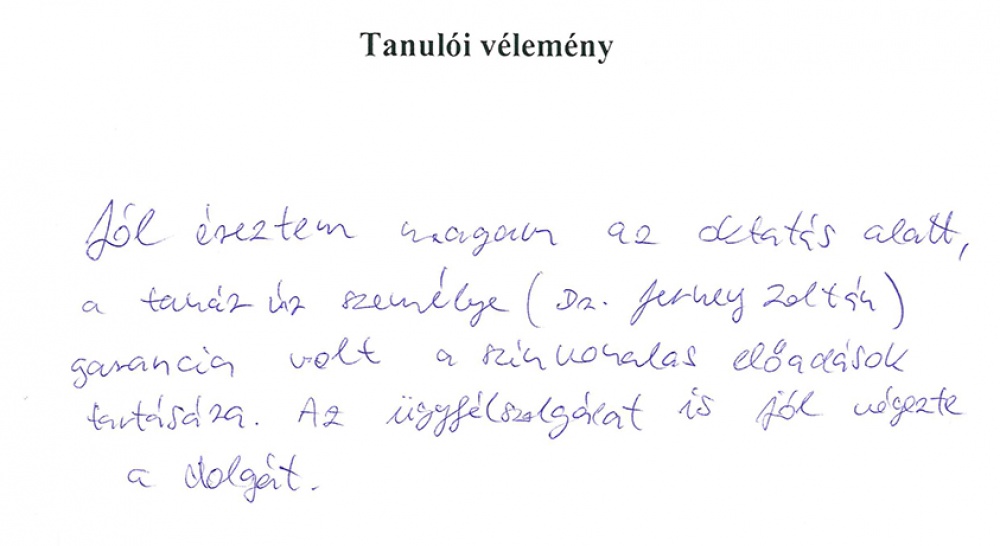 Tanulói vélemény
Jól éreztem magam az oktatás alatt,
a tanár úr személye (Dr. Jerney Zoltán)
garancia volt a színvonalas előadások
tartására. Az ügyfélszolgálat is jól végezte
a dolgát.